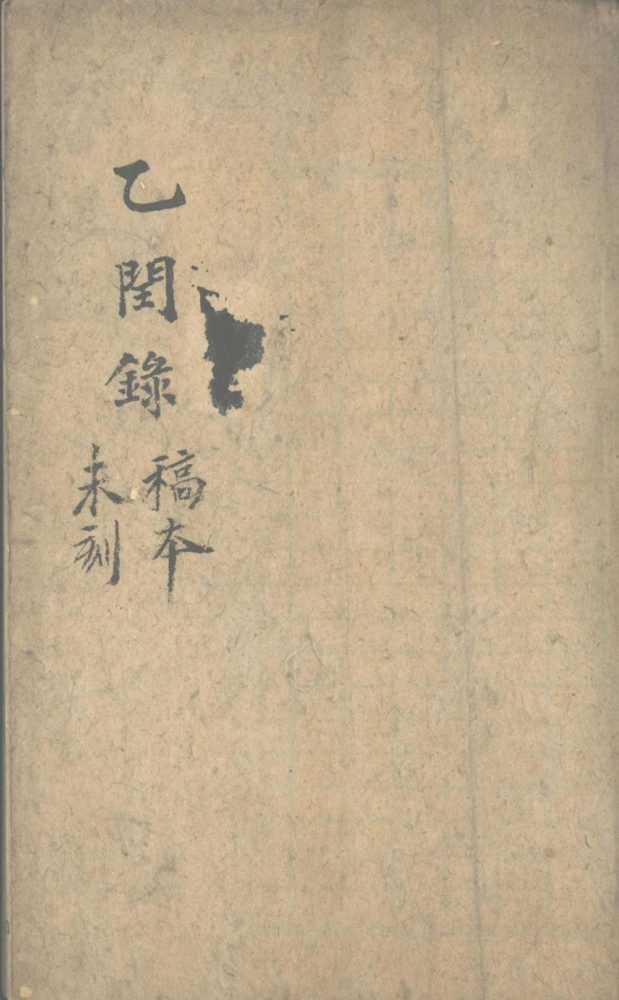 乙閏錄
稿本
未刻